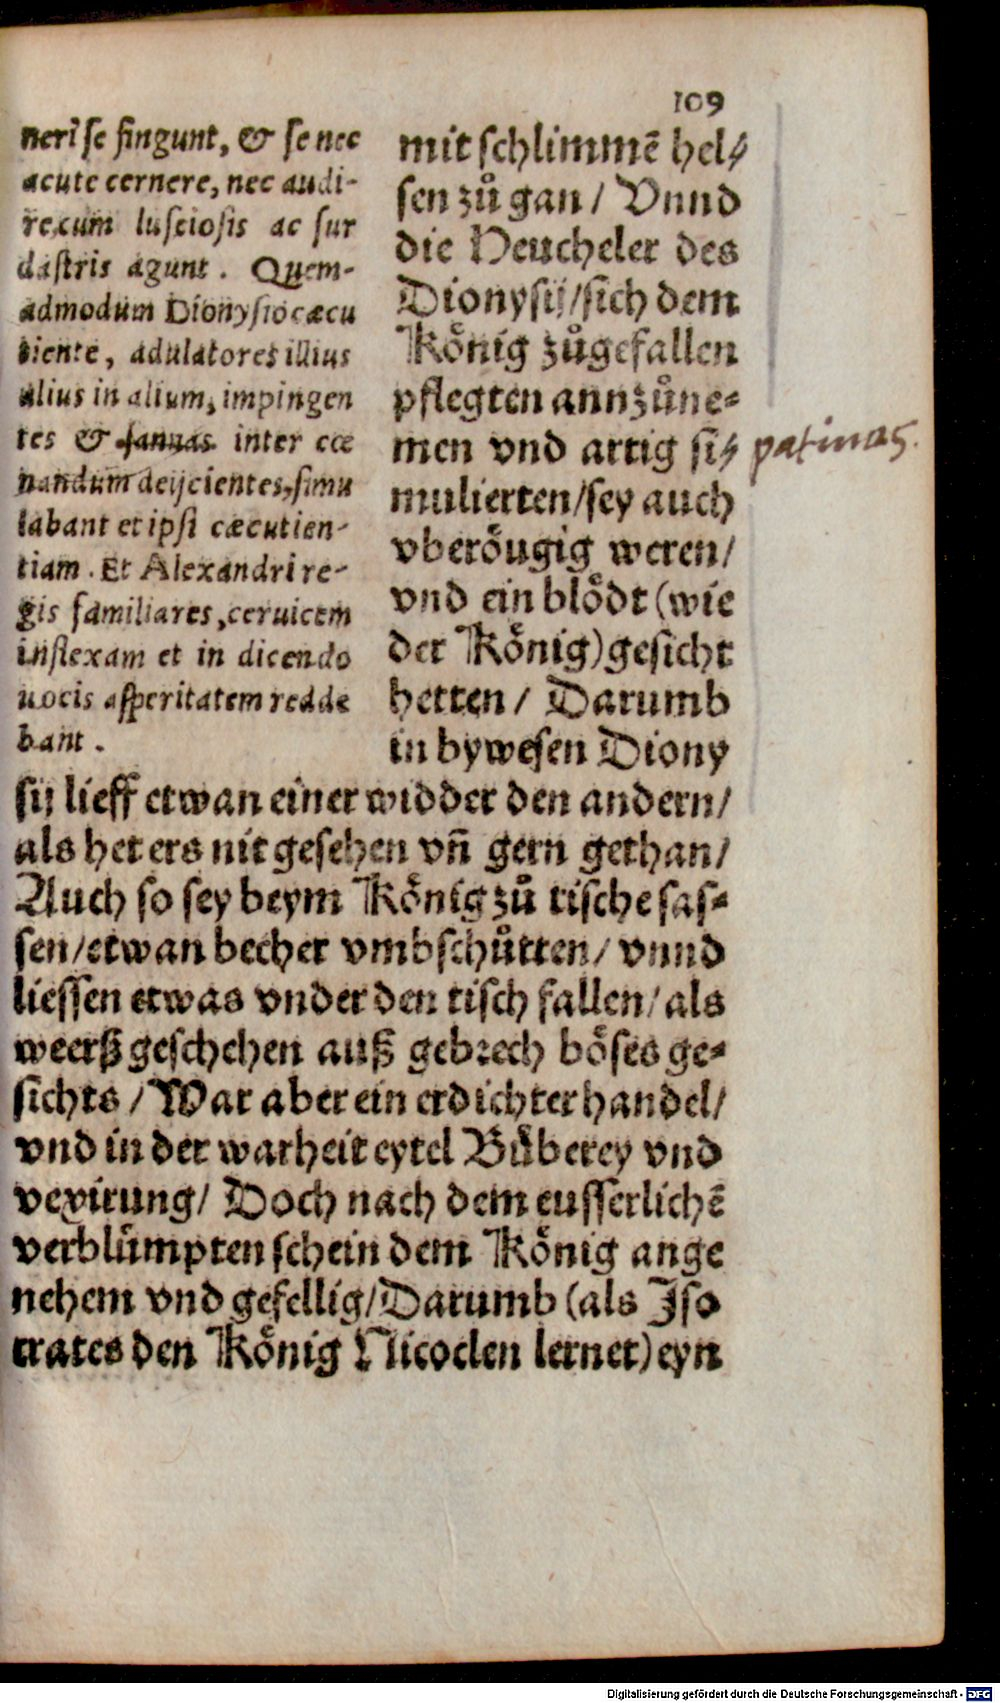 109
neri se fingunt, & se nec
acute cernere, nec audi-
re, cum lusciosis ac sur
dastris agunt. Quem-
admodum Dionysio cæcu
tiente, adulatores illius
alius in alium, impingen
tes & januas inter cœ
nandum deijcientes, simu
labant et ipsi cæcutien-
tiam. Et Alexandri re-
gis familiares, ceruicem
inflexam et in dicendo
uocis asperitatem redde
bant.
mit schlimmē hel⸗
sen zů gan / Vnnd
die Heucheler des
Dionysij/sich dem
König zůgefallen
pflegten annzůne⸗
men vnd artig si⸗
mulierten/sey auch
vberöugig weren/
vnd ein blödt (wie
der König) gesicht
hetten / Darumb
in bywesen Diony
patinas.
sij lieff etwan einer widder den andern/
als het ers nit gesehen vñ gern gethan/
Auch so sey beym König zů tische sas⸗
sen/etwan becher vmbschůtten/ vnnd
liessen etwas vnder den tisch fallen/als
weerß geschehen auß gebrech böses ge⸗
sichts / War aber ein erdichter handel/
vnd in der warheit eytel Bůberey vnd
vexirung/ Doch nach dem eusserlichē
verblümpten schein dem König ange
nehem vnd gefellig/Darumb (als Jso
crates den König Nicoclen lernet) eyn
Digitalisierung gefördert durch die Deutsche Forschungsgemeinschaft - DFG